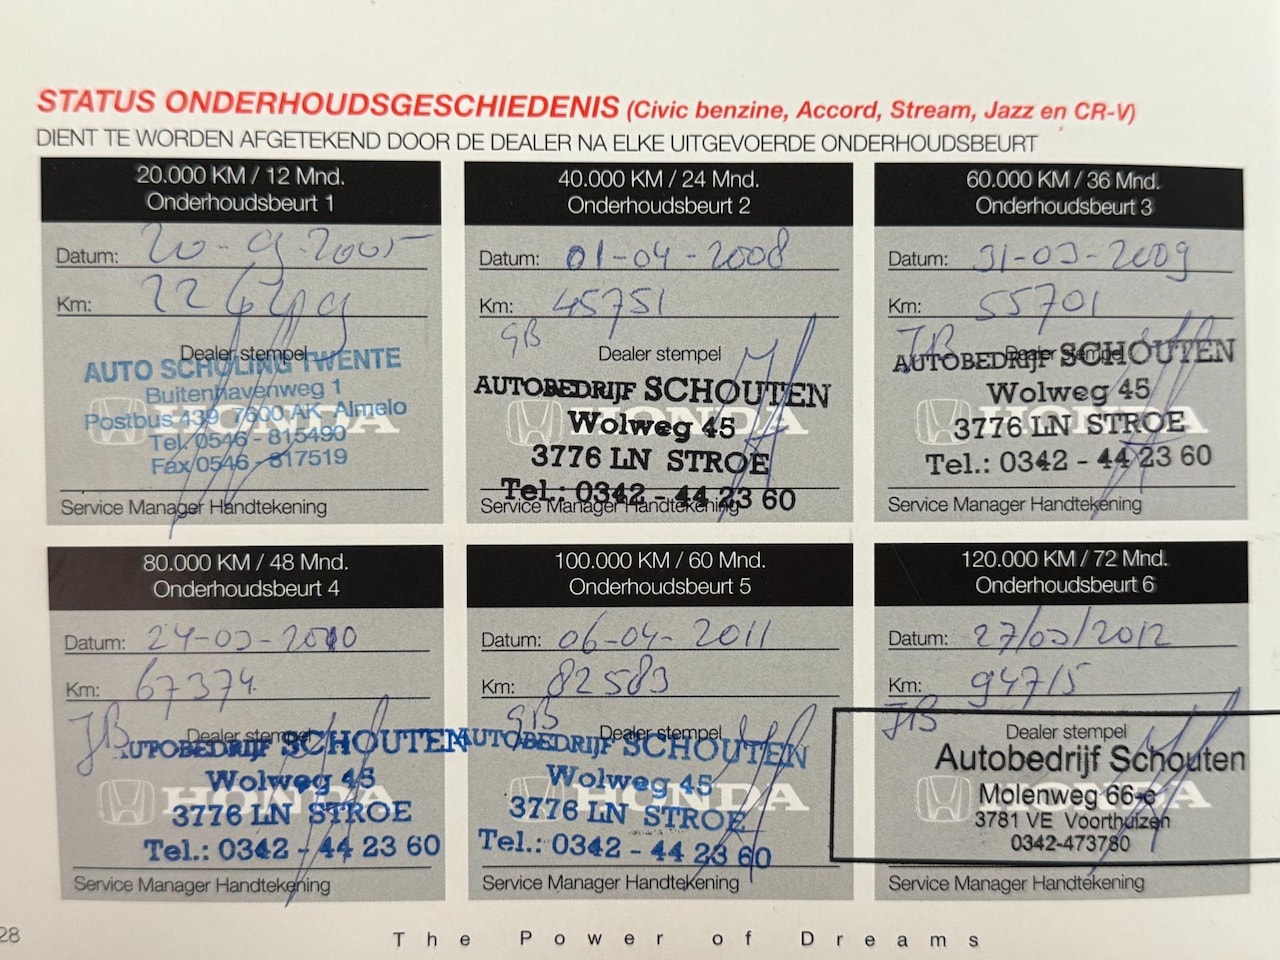 STATUS ONDERHOUDSGESCHIEDENIS (Civic benzine, Accord, Stream, Jazz en CR-V)
DIENT TE WORDEN AFGETEKEND DOOR DE DEALER NA ELKE UITGEVOERDE ONDERHOUDSBEURT
20.000 KM / 12 Mnd.
Onderhoudsbeurt 1
Datum: 20-9-2005
Km:
Dealer stempel
AUTO SCHOLING TWENTE
Buitenhavenweg 1
Postbus 439 7600 AK Almelo
Tel. 0546 - 815490
Fax 0546 - 817519
HONDA
Service Manager Handtekening
40.000 KM / 24 Mnd.
Onderhoudsbeurt 2
Datum: 01-04-2008
Km: 45751
GB
Dealer stempel
AUTOBEDRIJF SCHOUTEN
Wolweg 45
3776 LN STROE
Tel.: 0342 - 44 23 60
HONDA
Service Manager Handtekening
60.000 KM / 36 Mnd.
Onderhoudsbeurt 3
Datum: 31-03-2009
Km: 55701
JB
Dealer stempel
AUTOBEDRIJF SCHOUTEN
Wolweg 45
3776 LN STROE
Tel.: 0342 - 44 23 60
HONDA
Service Manager Handtekening
80.000 KM / 48 Mnd.
Onderhoudsbeurt 4
Datum: 24-03-2010
Km: 67374
JB
Dealer stempel
AUTOBEDRIJF SCHOUTEN
Wolweg 45
3776 LN STROE
Tel.: 0342 - 44 23 60
HONDA
Service Manager Handtekening
100.000 KM / 60 Mnd.
Onderhoudsbeurt 5
Datum: 06-04-2011
Km: 82583
GB
Dealer stempel
AUTOBEDRIJF SCHOUTEN
Wolweg 45
3776 LN STROE
Tel.: 0342 - 44 23 60
HONDA
Service Manager Handtekening
120.000 KM / 72 Mnd.
Onderhoudsbeurt 6
Datum: 27/03/2012
Km: 94715
JB
Dealer stempel
Autobedrijf Schouten
Molenweg 66-e
3781 VE Voorthuizen
0342-473780
HONDA
Service Manager Handtekening
28
The Power of Dreams